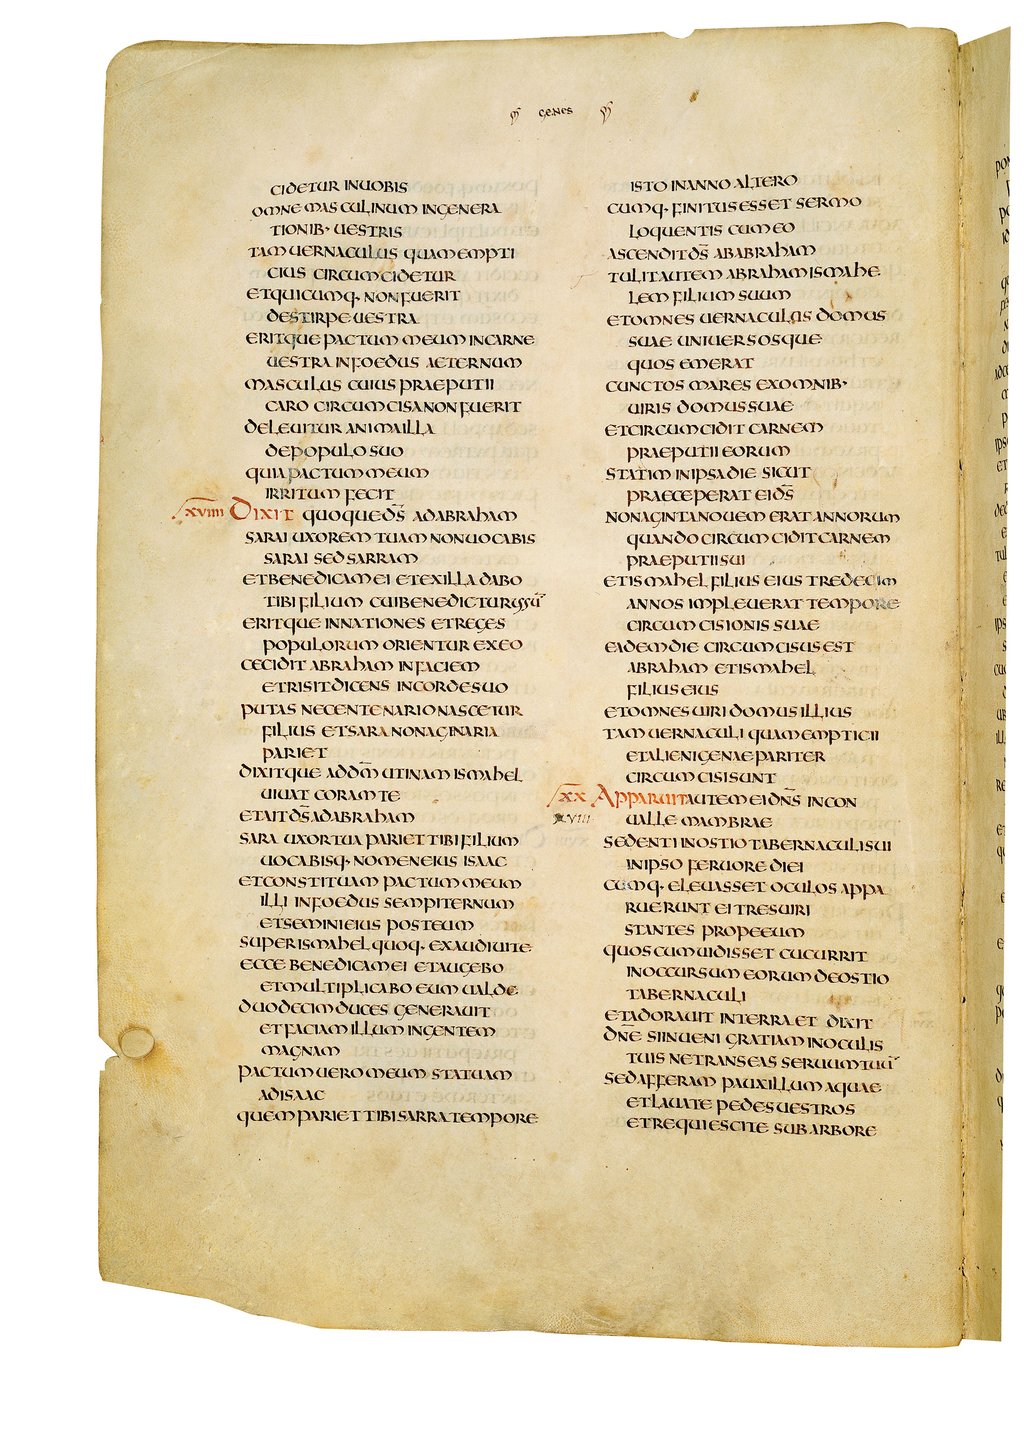 GENES
CIDETUR INUOBIS
OMNE MASCULINUM INGENERA
TIONIB· UESTRIS
TAM UERNACULUS QUAM EMPTI
CIUS CIRCUMCIDETUR
ETQUICUMQ· NON FUERIT
DESTIRPE UESTRA
ERITQUE PACTUM MEUM INCARNE
UESTRA INFOEDUS AETERNUM
MASCULUS CUIUS PRAEPUTII
CARO CIRCUMCISA NON FUERIT
DELEUITUR ANIMA ILLA
DEPOPULO SUO
QUIA PACTUM MEUM
IRRITUM FECIT
XVIIII DIXIT QUOQUE D̅S̅ ADABRAHAM
SARAI UXOREM TUAM NON UOCABIS
SARAI SED SARRAM
ETBENEDICAM EI ETEXILLA DABO
TIBI FILIUM CUI BENEDICTURUS SU̅
ERITQUE INNATIONES ETREGES
POPULORUM ORIENTUR EXEO
CECIDIT ABRAHAM INFACIEM
ETRISIT DICENS INCORDE SUO
PUTAS NE CENTENARIO NASCETUR
FILIUS ETSARA NONAGINARIA
PARIET
DIXITQUE ADD̅M̅ UTINAM ISMAHEL
UIUAT CORAM TE
ETAIT D̅S̅ ADABRAHAM
SARA UXOR TUA PARIET TIBI FILIUM
UOCABISQ· NOMEN EIUS ISAAC
ETCONSTITUAM PACTUM MEUM
ILLI INFOEDUS SEMPITERNUM
ETSEMINI EIUS POST EUM
SUPER ISMAHEL QUOQ· EXAUDIUI TE
ECCE BENEDICAM EI ETAUGEBO
ETMULTIPLICABO EUM UALDE
DUODECIM DUCES GENERAUIT
ETFACIAM ILLUM INGENTEM
MAGNAM
PACTUM UERO MEUM STATUAM
ADISAAC
QUEM PARIET TIBI SARRA TEMPORE
ISTO INANNO ALTERO
CUMQ· FINITUS ESSET SERMO
LOQUENTIS CUM EO
ASCENDIT D̅S̅ ABABRAHAM
TULIT AUTEM ABRAHAM ISMAHE
LEM FILIUM SUUM
ETOMNES UERNACULOS DOMUS
SUAE UNIUERSOSQUE
QUOS EMERAT
CUNCTOS MARES EXOMNIB·
UIRIS DOMUS SUAE
ETCIRCUMCIDIT CARNEM
PRAEPUTII EORUM
STATIM INIPSA DIE SICUT
PRAECEPERAT EI D̅S̅
NONAGINTA NOUEM ERAT ANNORUM
QUANDO CIRCUMCIDIT CARNEM
PRAEPUTII SUI
ETISMAHEL FILIUS EIUS TREDECIM
ANNOS IMPLEUERAT TEMPORE
CIRCUMCISIONIS SUAE
EADEM DIE CIRCUMCISUS EST
ABRAHAM ETISMAHEL
FILIUS EIUS
ETOMNES UIRI DOMUS ILLIUS
TAM UERNACULI QUAM EMPTICII
ETALIENIGENAE PARITER
CIRCUMCISI SUNT
XX APPARUIT AUTEM EI D̅N̅S̅ INCON
XVIII UALLE MAMBRAE
SEDENTI INOSTIO TABERNACULI SUI
INIPSO FERUORE DIEI
CUMQ· ELEUASSET OCULOS APPA
RUERUNT EI TRES UIRI
STANTES PROPE EUM
QUOS CUM UIDISSET CUCURRIT
INOCCURSUM EORUM DEOSTIO
TABERNACULI
ETADORAUIT INTERRA ET DIXIT
D̅N̅E̅ SI INUENI GRATIAM INOCULIS
TUIS NE TRANSEAS SERUUM TUU̅
SED AFFERAM PAUXILLUM AQUAE
ETLAUATE PEDES UESTROS
ETREQUIESCITE SUB ARBORE